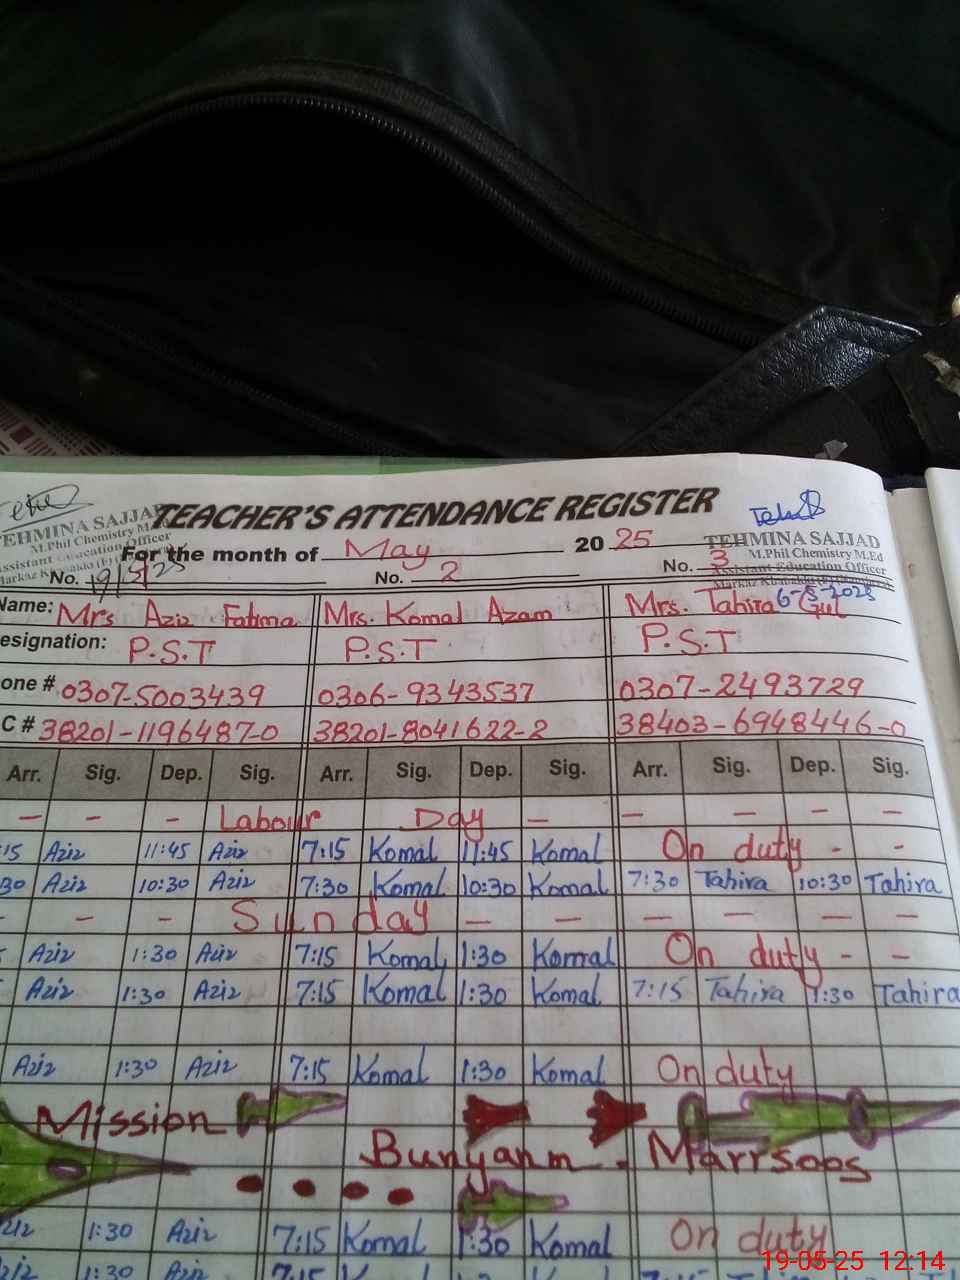 TEACHER'S ATTENDANCE REGISTER
TEHMINA SAJJAD
M.Phil Chemistry M.Ed
Assistant Education Officer
TEHMINA SAJJAD
M.Phil Chemistry M.Ed
Assistant Education Officer
For the month of May 20 25
No. 19/5/25 No. 2 No. 3
6-5-2025
Name: Mrs Aziz Fatima Mrs. Komal Azam Mrs. Tahira Gul
esignation: P.S.T P.S.T P.S.T
one # 0307-5003439 0306-9343537 0307-2493729
C # 38201-1196487-0 38201-8041622-2 38403-6948446-0
Arr. Sig. Dep. Sig. Arr. Sig. Dep. Sig. Arr. Sig. Dep. Sig.
- - - Labour Day - - - - -
15 Aziz 11:45 Aziz 7:15 Komal 11:45 Komal On duty - -
30 Aziz 10:30 Aziz 7:30 Komal 10:30 Komal 7:30 Tahira 10:30 Tahira
- - - Sunday - - - - - -
Aziz 1:30 Aziz 7:15 Komal 1:30 Komal On duty - -
Aziz 1:30 Aziz 7:15 Komal 1:30 Komal 7:15 Tahira 1:30 Tahira
Aziz 1:30 Aziz 7:15 Komal 1:30 Komal On duty
Mission
Bunyanm - Marrsoos
ziz 1:30 Aziz 7:15 Komal 1:30 Komal On duty
1:30 Aziz 7:15 Komal 1:30 Komal
19-05-25 12:14